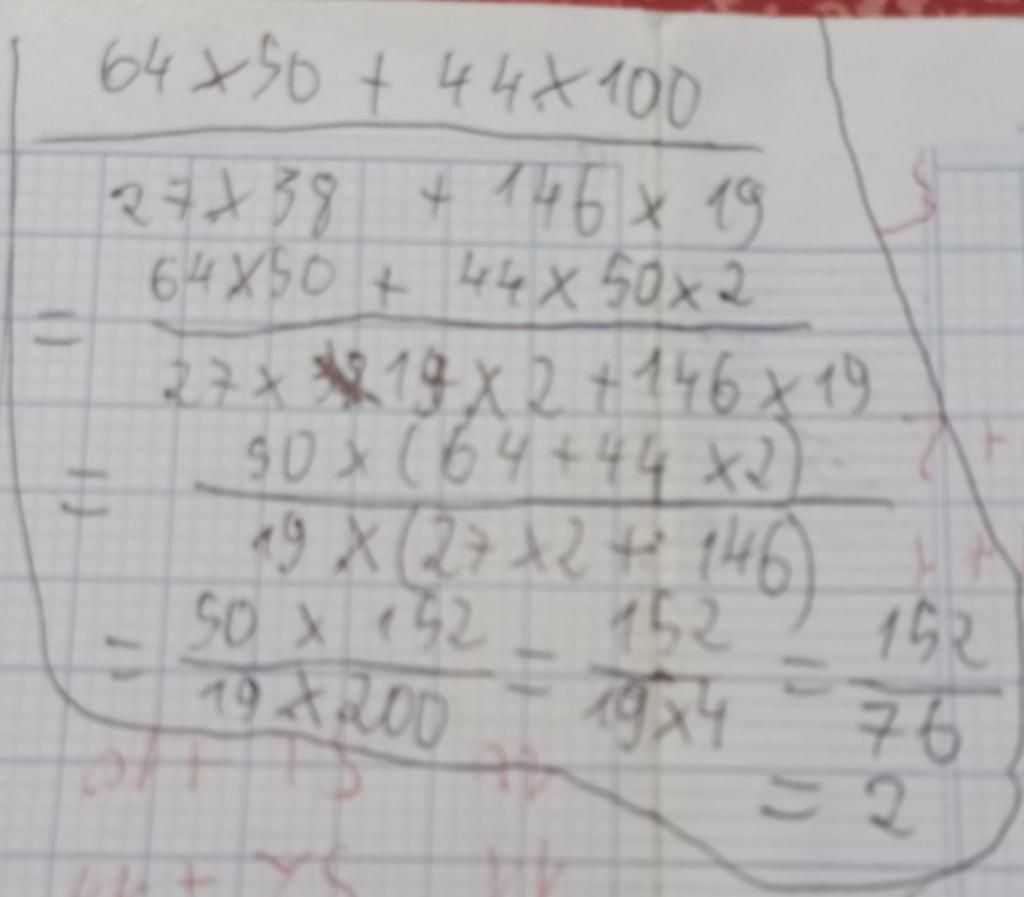 64 x 50 + 44 x 100
27 x 38 + 146 x 19
64 x 50 + 44 x 50 x 2
=
27 x 19 x 2 + 146 x 19
50 x (64 + 44 x 2)
=
19 x (27 x 2 + 146)
= 50 x 152 / 19 x 200 = 152 / 19 x 4 = 152 / 76
= 2